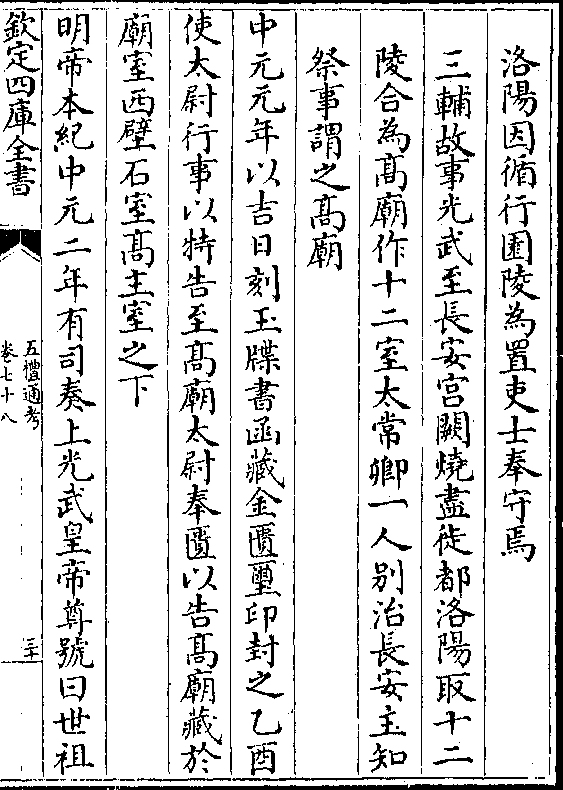 洛陽因循行園陵為置吏士奉守焉
三輔故事光武至長安宫闕燒盡徙都洛陽取十二
陵合為髙廟作十二室太常卿一人别治長安主知
祭事謂之髙廟
中元元年以吉日刻玉牒書函藏金匱璽印封之乙酉
使太尉行事以特告至髙廟太尉奉匱以告髙廟藏於
廟室西壁石室髙主室之下
明帝本紀中元二年有司奏上光武皇帝尊號曰世祖
欽定四庫全書
五禮通考
卷七十八
三十